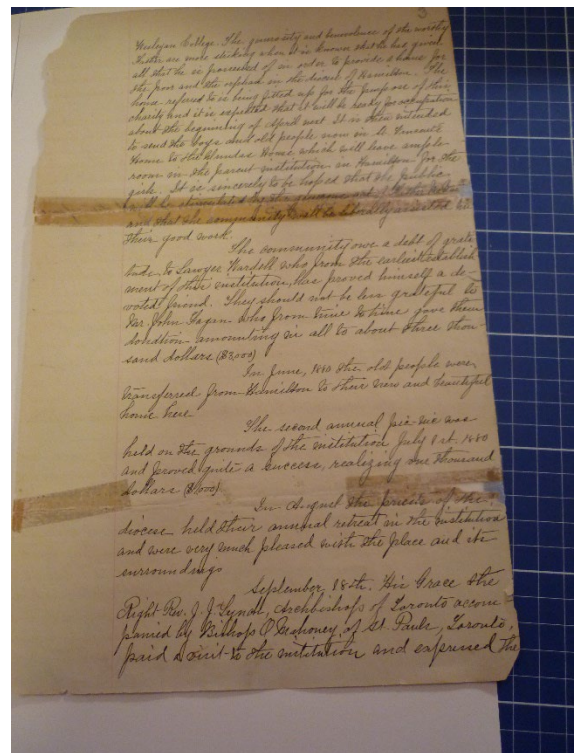 3
Wesleyan College. The generosity and benevolence of the worthy
are more striking when it is known that he has given
all that he is possessed of in order to provide a home for
the poor and the orphan in the town of Hamilton. The
home referred to is being fitted up for the purpose of this
charity and it is expected that it will be ready for occupation
about the beginning of April next. It is then intended
to send the boys and old people now in St. Vincents
Home to the Dundas Home which will leave ample
room in the parent institution in Hamilton for the
girls. It is sincerely to be hoped that the public
will be stimulated by the generous act of
and that the community will be liberally assisted in
their good work.
The community owe a debt of grati
tude to Lawyer Wardell who from the earliest establish
ment of their institution, has proved himself a de-
voted friend. They should not be less grateful to
Mr. John Fagan who from time to time gave them
donation amounting in all to about three thou-
sand dollars ($3,000)
In June, 1880 the old people were
transferred from Hamilton to their new and beautiful
home here.
The second annual pic-nic was
held on the grounds of the institution July 1st. 1880
and proved quite a success, realizing one thousand
dollars ($1,000).
In August the priests of the
diocese held their annual retreat in the institution
and were very much pleased with the place and its
surroundings
September 18th. His Grace the
Right Rev. J. J. Lynch, Archbishop of Toronto accom
panied by Bishop O'Mahoney, of St. Pauls, Toronto,
paid a visit to the institution and expressed the